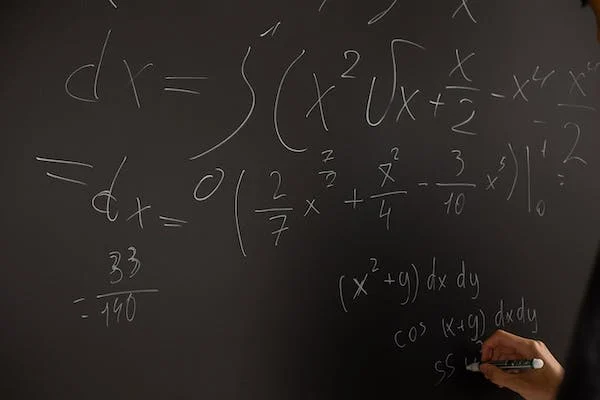 dx = ∫₀¹ (x²√x + x/2 - x⁴ - x⁴/2
= dx = (2/7 x^(7/2) + x²/4 - 3/10 x⁵)|₀¹ =
= 33/140
(x² + y) dx dy
cos (x+y) dxdy